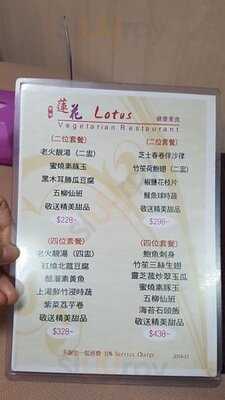 蓮花 Lotus 健康素食
Vegetarian Restaurant
(二位套餐)
老火靚湯(二盅)
蜜燒素豚玉
黑木耳勝瓜豆腐
五柳仙班
敬送精美甜品
$228-
(二位套餐)
芝士春卷伴沙律
竹笙荷鮑翅(二盅)
椒鹽花枝片
鮮魚球時蔬
敬送精美甜品
$298-
(四位套餐)
老火靚湯(四盅)
紅燒北菰豆腐
醋溜素黃魚
上湯鮮竹浸時蔬
紫菜荔芋卷
敬送精美甜品
$328-
(四位套餐)
鮑魚刺身
竹笙三絲生翅
靈芝菇炒翠玉瓜
蜜燒素豚玉
五柳仙班
海苔石頭飯
敬送精美甜品
$438-
另設加一服務費 10% Service Charge